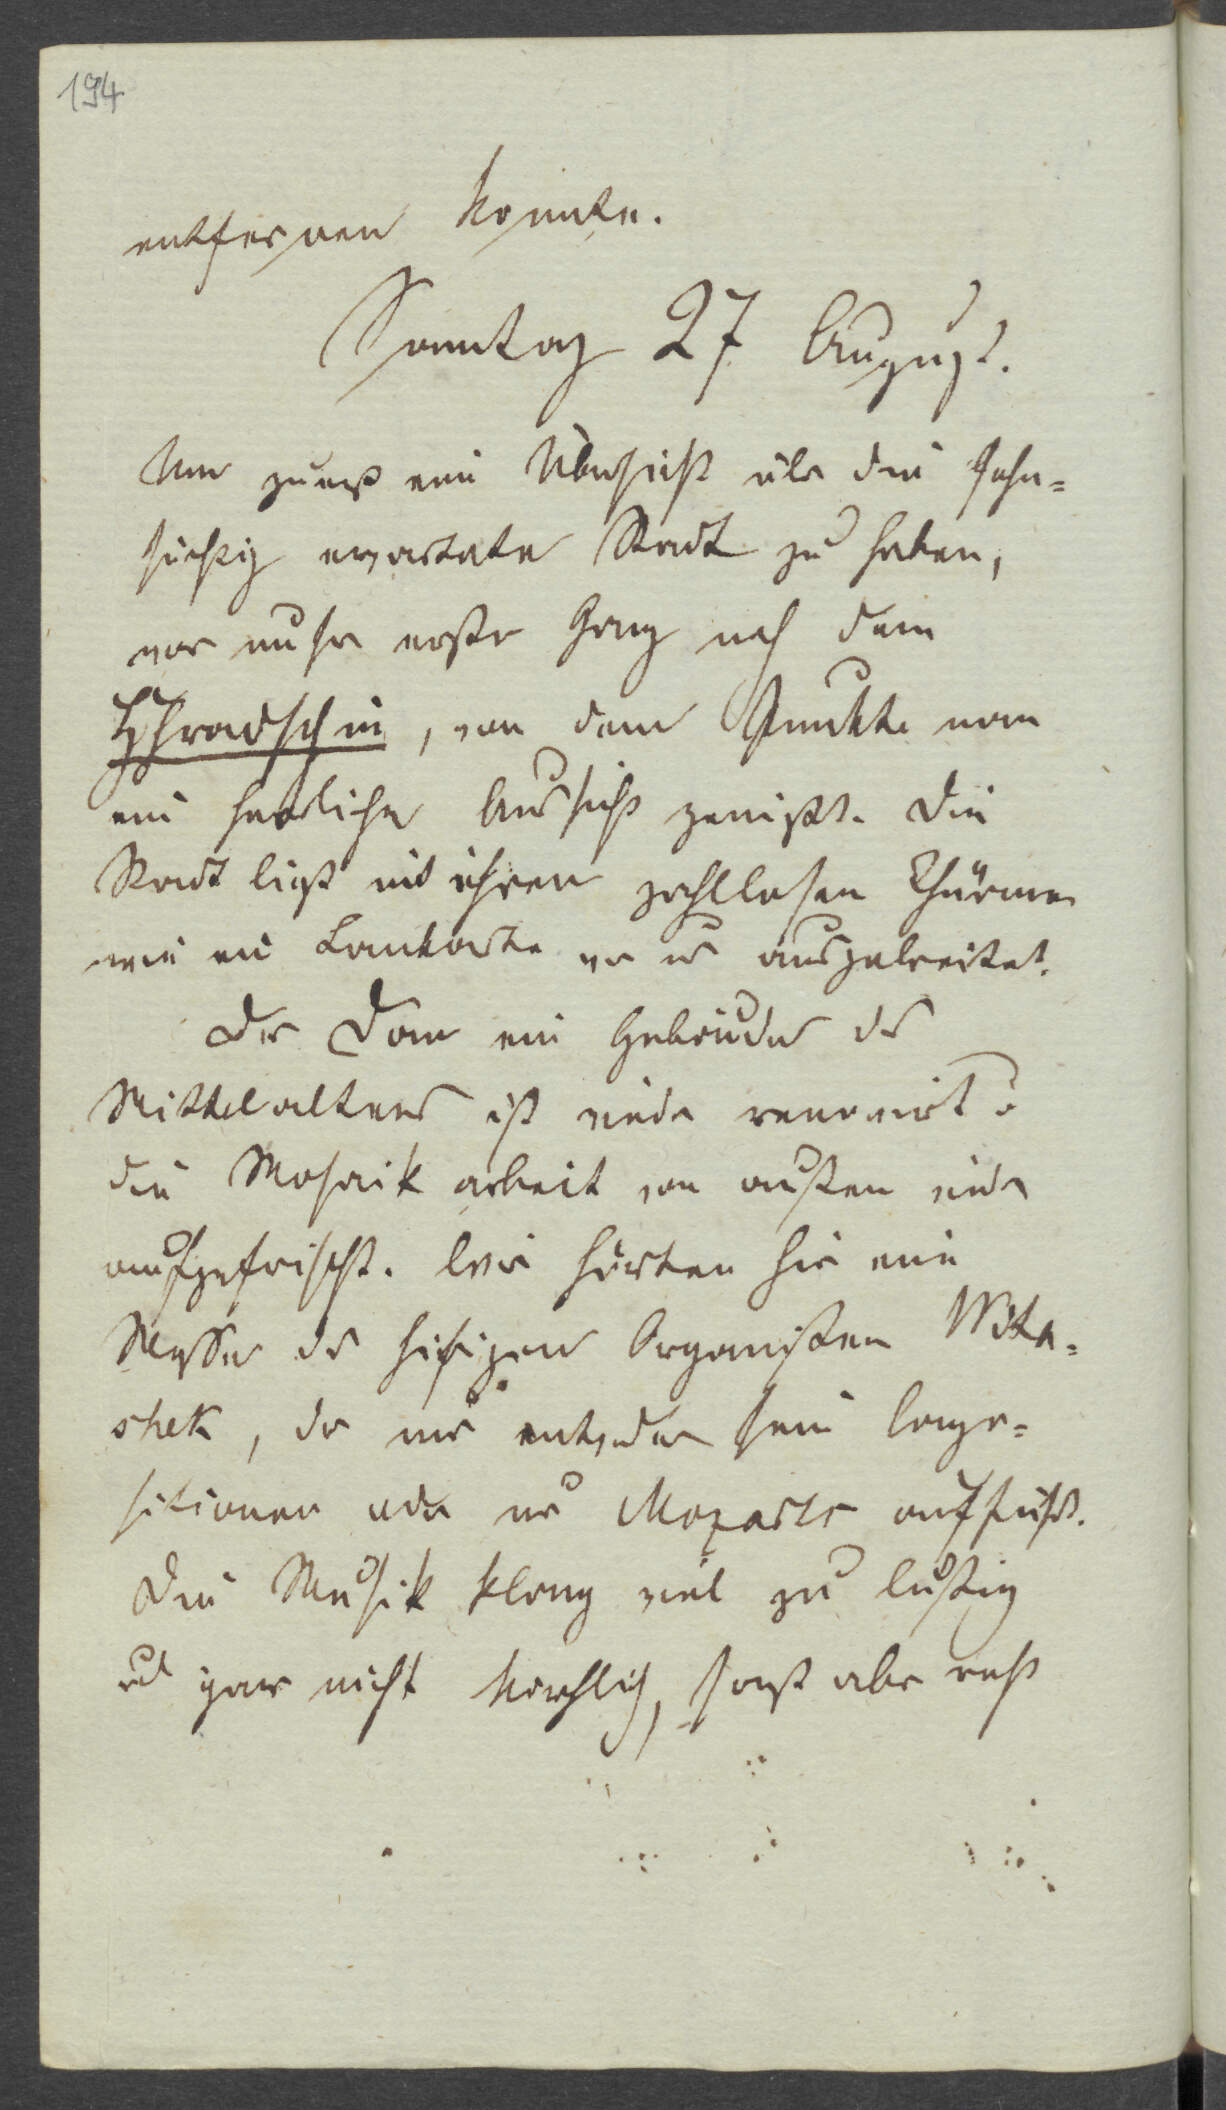 194
entfernen konnte.
Sonntag 27 August.
Um zuerst eine Übersicht über die sehn=
süchtig erwartete Stadt zu haben,
war unser erster Gang nach dem
Hhradschin, von dem Punkte man
eine herliche Aussicht genießt. Die
Stadt liegt mit ihren zahllosen Thürmen
wie eine Lankarte vor uns ausgebreitet.
Der Dom ein Gebäude des
Mittelalters ist wieder renovirt u
die Mosaik arbeit von außen wieder
aufgefrischt. Wir hörten hier eine
Messe des hisigen Organisten Wita=
shek, der nur entweder seine Compo=
sitionen oder nur Mozarts aufführt.
Die Musik klang viel zu lustig
und gar nicht kirchlich, sonst aber recht